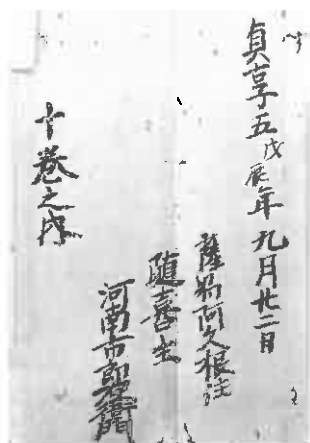 貞享五戊辰年九月廿二日
薩州阿久根住
隨喜主
河南市郎右衛門
十卷之内